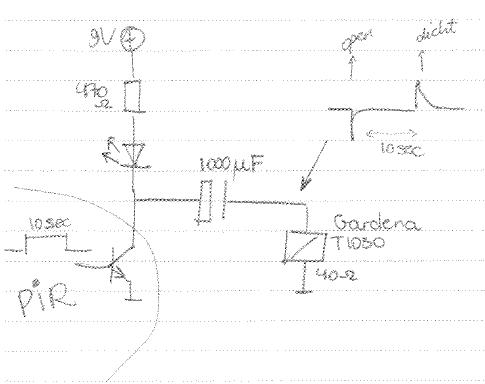 9V +
470
Ω
open
dicht
10 sec
1000 µF
Gardena
T1030
40Ω
10 sec
PiR